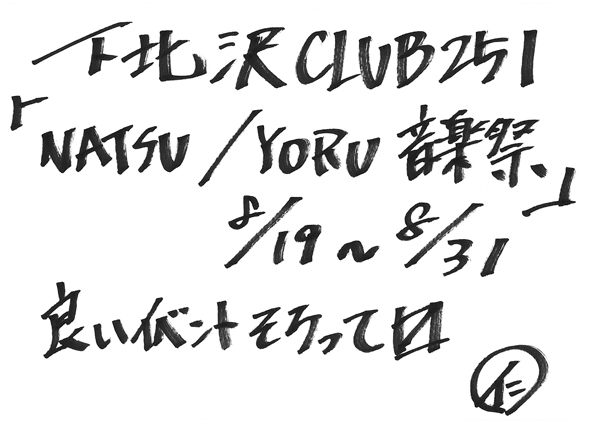 下北沢CLUB251
「NATSU/YORU 音楽祭」
8/19～8/31
良いイベントそろってロ
仁